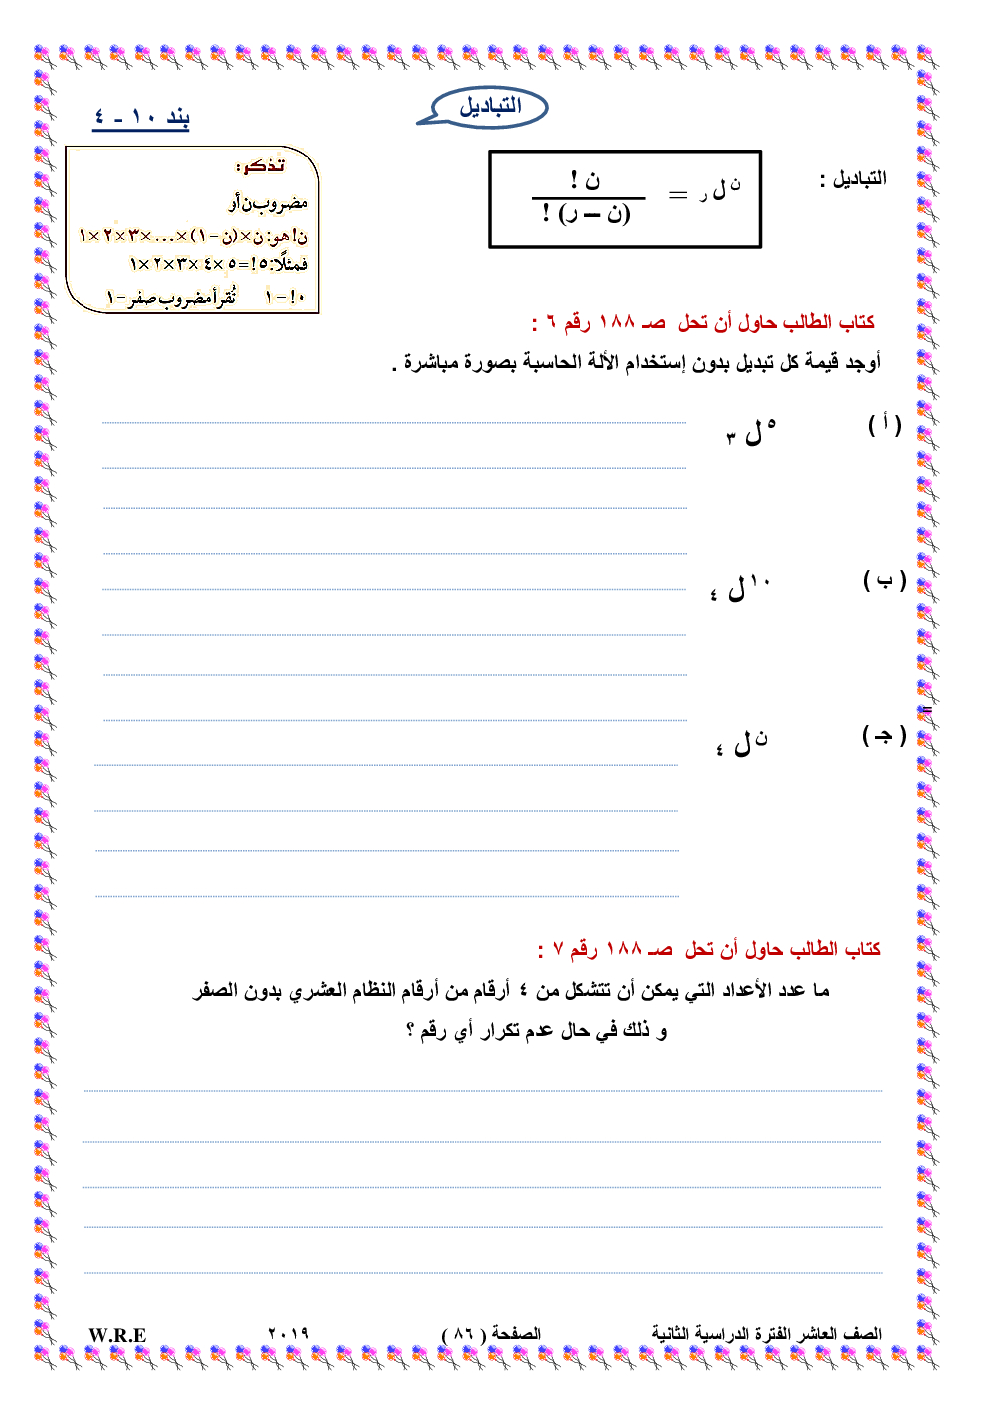 التباديل
بند ١٠ - ٤
التباديل :
ن ل ر = ن ! / (ن – ر) !
تذكر:
مضروب ن أو
ن! هو: ن×(ن-١)×...×٣×٢×١
فمثلًا: ٥! = ٥×٤×٣×٢×١
٠! - ١ تُقرأ مضروب صفر - ١
كتاب الطالب حاول أن تحل صـ ١٨٨ رقم ٦ :
أوجد قيمة كل تبديل بدون إستخدام الألة الحاسبة بصورة مباشرة .
( أ ) ٥ ل ٣
( ب ) ١٠ ل ٤
=
( جـ ) ن ل ٤
كتاب الطالب حاول أن تحل صـ ١٨٨ رقم ٧ :
ما عدد الأعداد التي يمكن أن تتشكل من ٤ أرقام من أرقام النظام العشري بدون الصفر
و ذلك في حال عدم تكرار أي رقم ؟
الصف العاشر الفترة الدراسية الثانية الصفحة ( ٨٦ ) ٢٠١٩ W.R.E